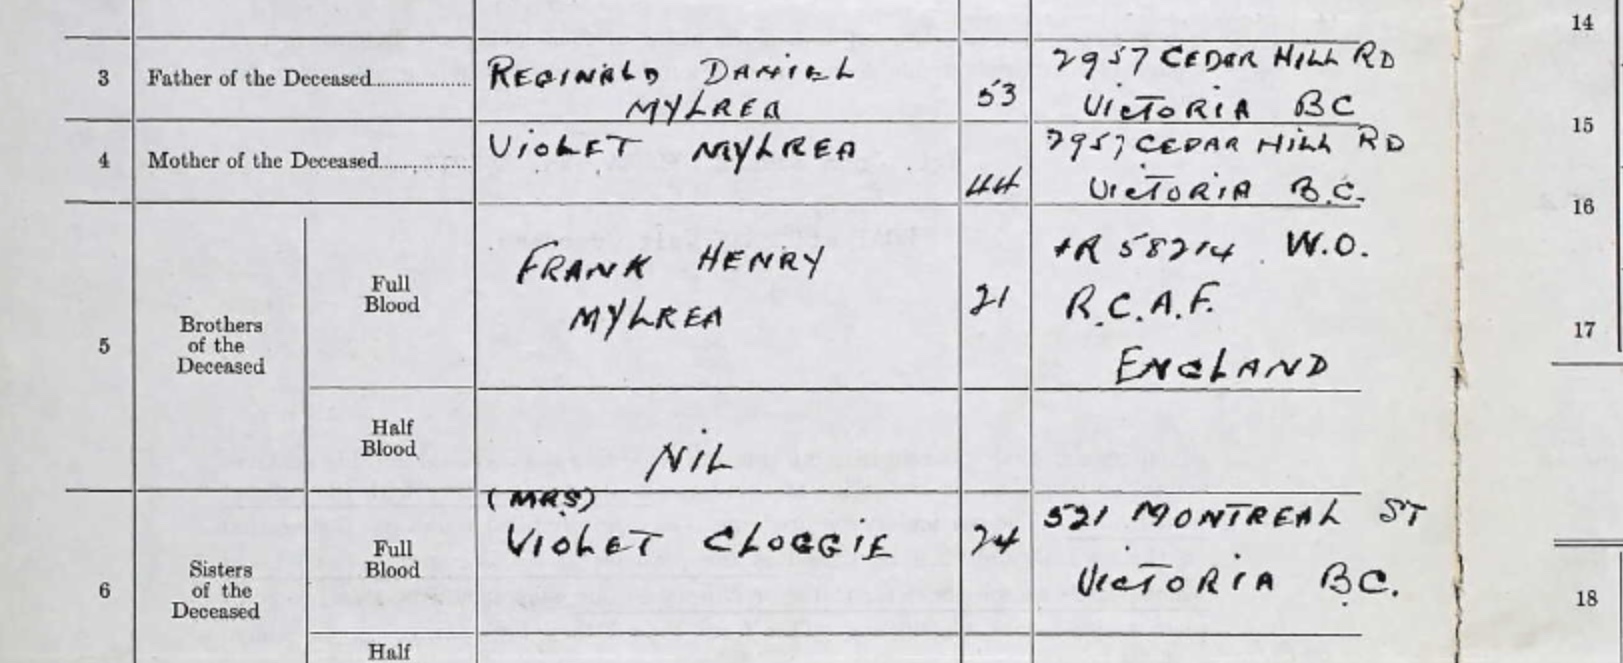 14
3 Father of the Deceased.................... REGINALD DANIEL 2957 CEDAR HILL RD
MYLREA 53 VICTORIA BC
15
4 Mother of the Deceased.................. VIOLET MYLREA 2957 CEDAR HILL RD
44 VICTORIA B.C.
16
5 Brothers
of the
Deceased
Full
Blood
FRANK HENRY +R 58214 W.O.
MYLREA 21 R.C.A.F.
ENGLAND
17
Half
Blood
NIL
6 Sisters
of the
Deceased
Full
Blood
(MRS) 521 MONTREAL ST
VIOLET CLOGGIE 24 VICTORIA BC.
18
Half